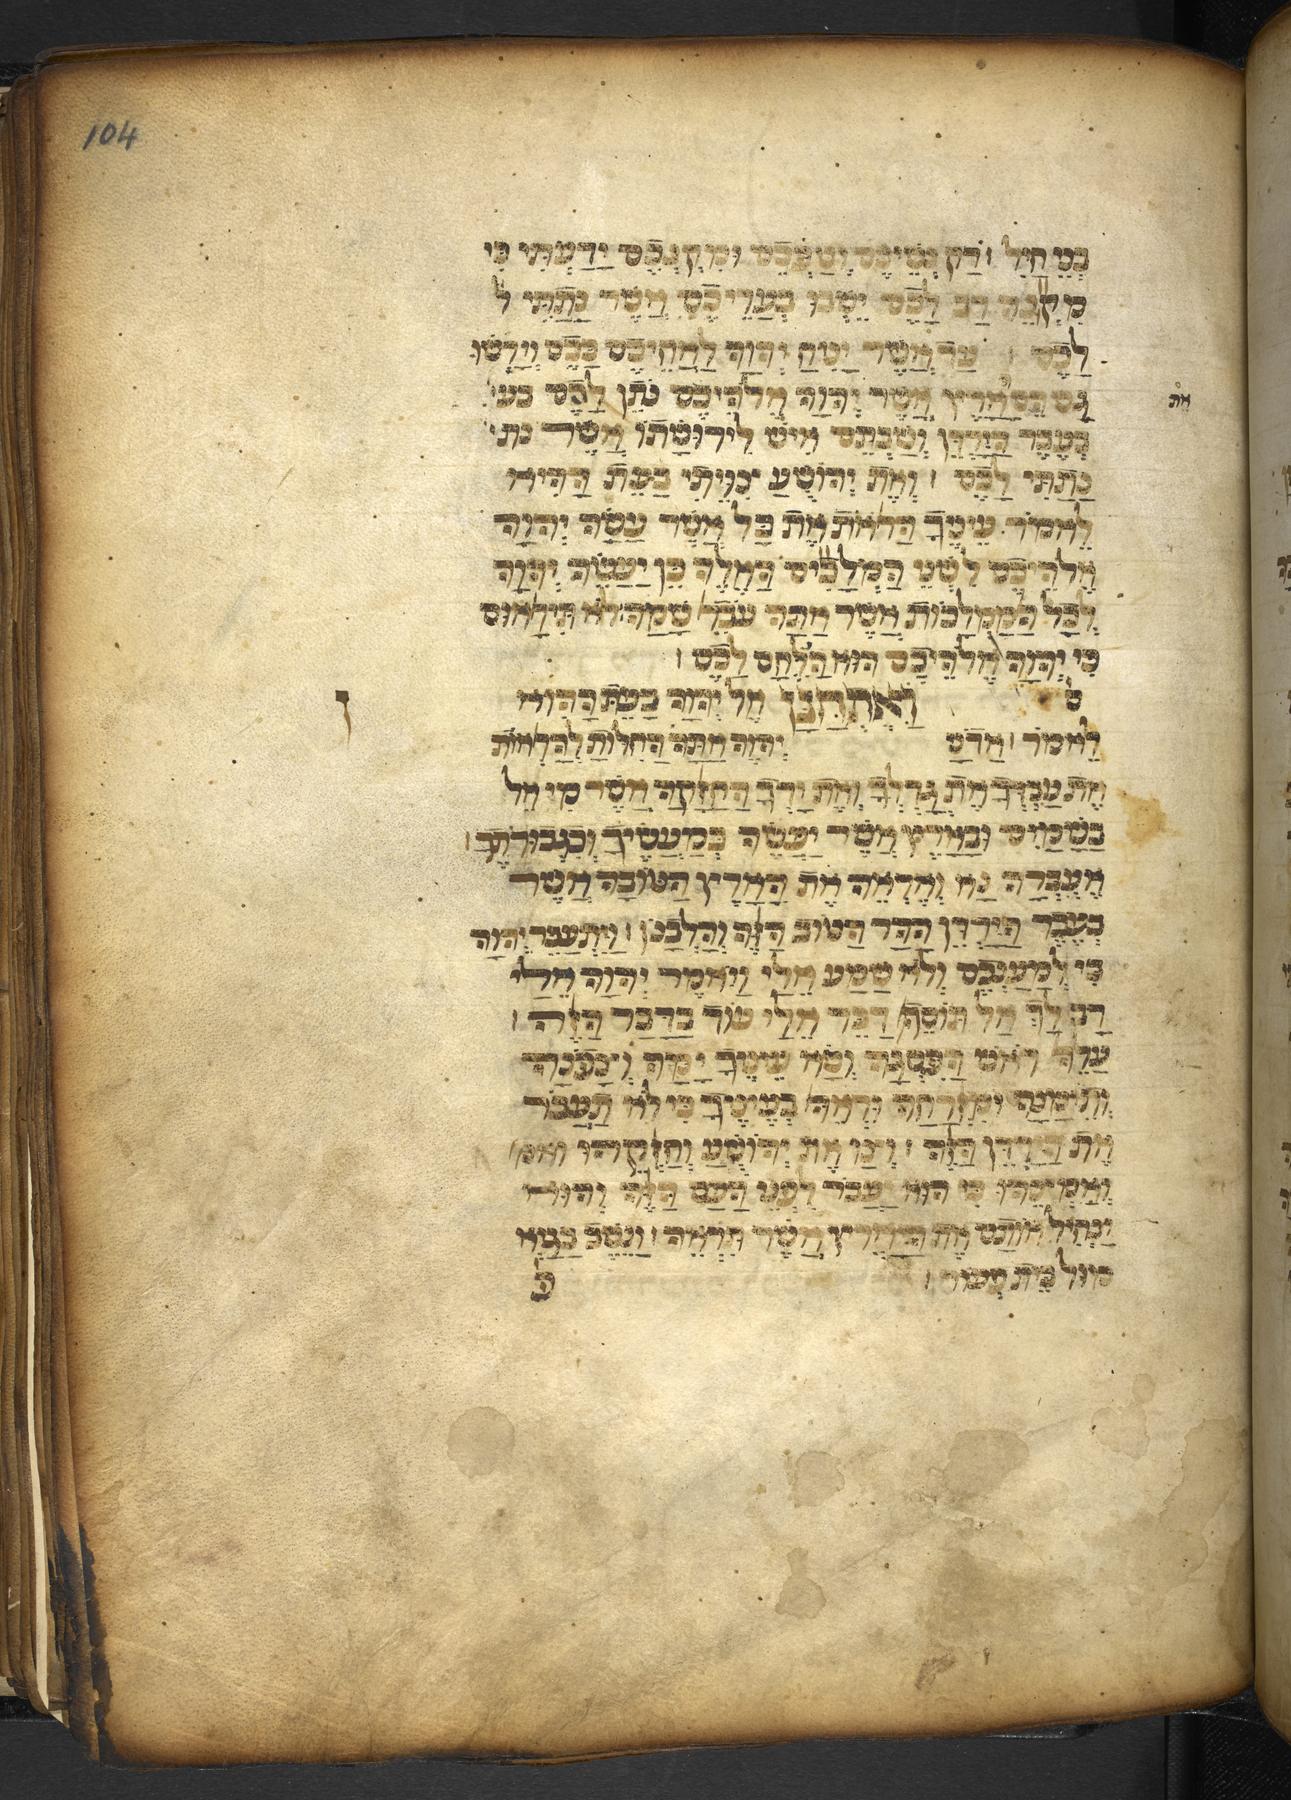 104
בני חיל ׀ רק נשיכם וטפכם ומקנכם ידעתי כי
מקנה רב לכם ישבו בעריכם אשר נתתי ל
לכם ׀ עד אשר יניח יהוה לאחיכם ככם וירשו
גם הם הארץ אשר יהוה אלהיכם נתן להם בע
את
בעבר הירדן ושבתם איש לירושתו אשר נת
נתתי לכם ׀ ואת יהושע צויתי בעת ההיא
לאמר עיניך הראות את כל אשר עשה יהוה
אלהיכם לשני המלכים האלה כן יעשה יהוה
לכל הממלכות אשר אתה עבר שמה לא תיראום
כי יהוה אלהיכם הוא הנלחם לכם ׀
ס ואתחנן אל יהוה בעת ההוא
לאמר ׀ אדני יהוה אתה החלות להראות
את עבדך את גדלך ואת ידך החזקה אשר מי אל
בשמים ובארץ אשר יעשה כמעשיך וכגבורתך ׀
אעברה נא ואראה את הארץ הטובה אשר
בעבר הירדן ההר הטוב הזה והלבנן ׀ ויתעבר יהוה
בי למענכם ולא שמע אלי ויאמר יהוה אלי
רב לך אל תוסף דבר אלי עוד בדבר הזה ׀
עלה ראש הפסגה ושא עיניך ימה וצפנה
ותימנה ומזרחה וראה בעיניך כי לא תעבר
את הירדן הזה ׀ וצו את יהושע וחזקהו ואמ
ואמצהו כי הוא יעבר לפני העם הזה והוא
ינחיל אותם את הארץ אשר תראה ׀ ונשב בגיא
מול בית פעור ׀ פ